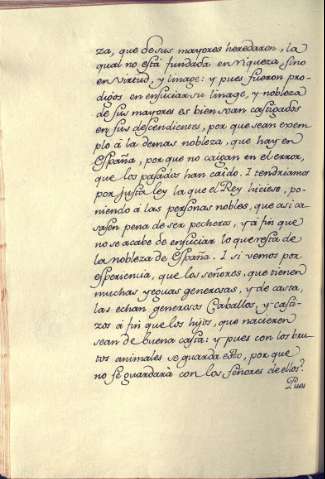 za, que de sus mayores heredaron, la
qual no está fundada en riqueza, sino
en virtud, y linage: y pues fueron pro-
digos en ensuciar su linage, y nobleza
de sus mayores es bien sean castigados
en sus descendientes, por que sean exem
plo á la demas nobleza, que hay en
España, por que no caigan en el error,
que los pasados han caido. I tendriamos
por justa ley la que el Rey hiciese, po-
niendo á las personas nobles, que asi ca-
sasen pena de ser pecheros, y á fin que
no se acabe de ensuciar lo que resta de
la nobleza de España. I si vemos por
esperiencia, que los señores, que tienen
muchas yeguas generosas, y de casta,
las echan generosos Caballos, y casti-
zos á fin que los hijos, que nacieren
sean de buena casta: y pues con los bru-
tos animales se guarda esto, por que
no se guardará con los señores de ellos?
Pues